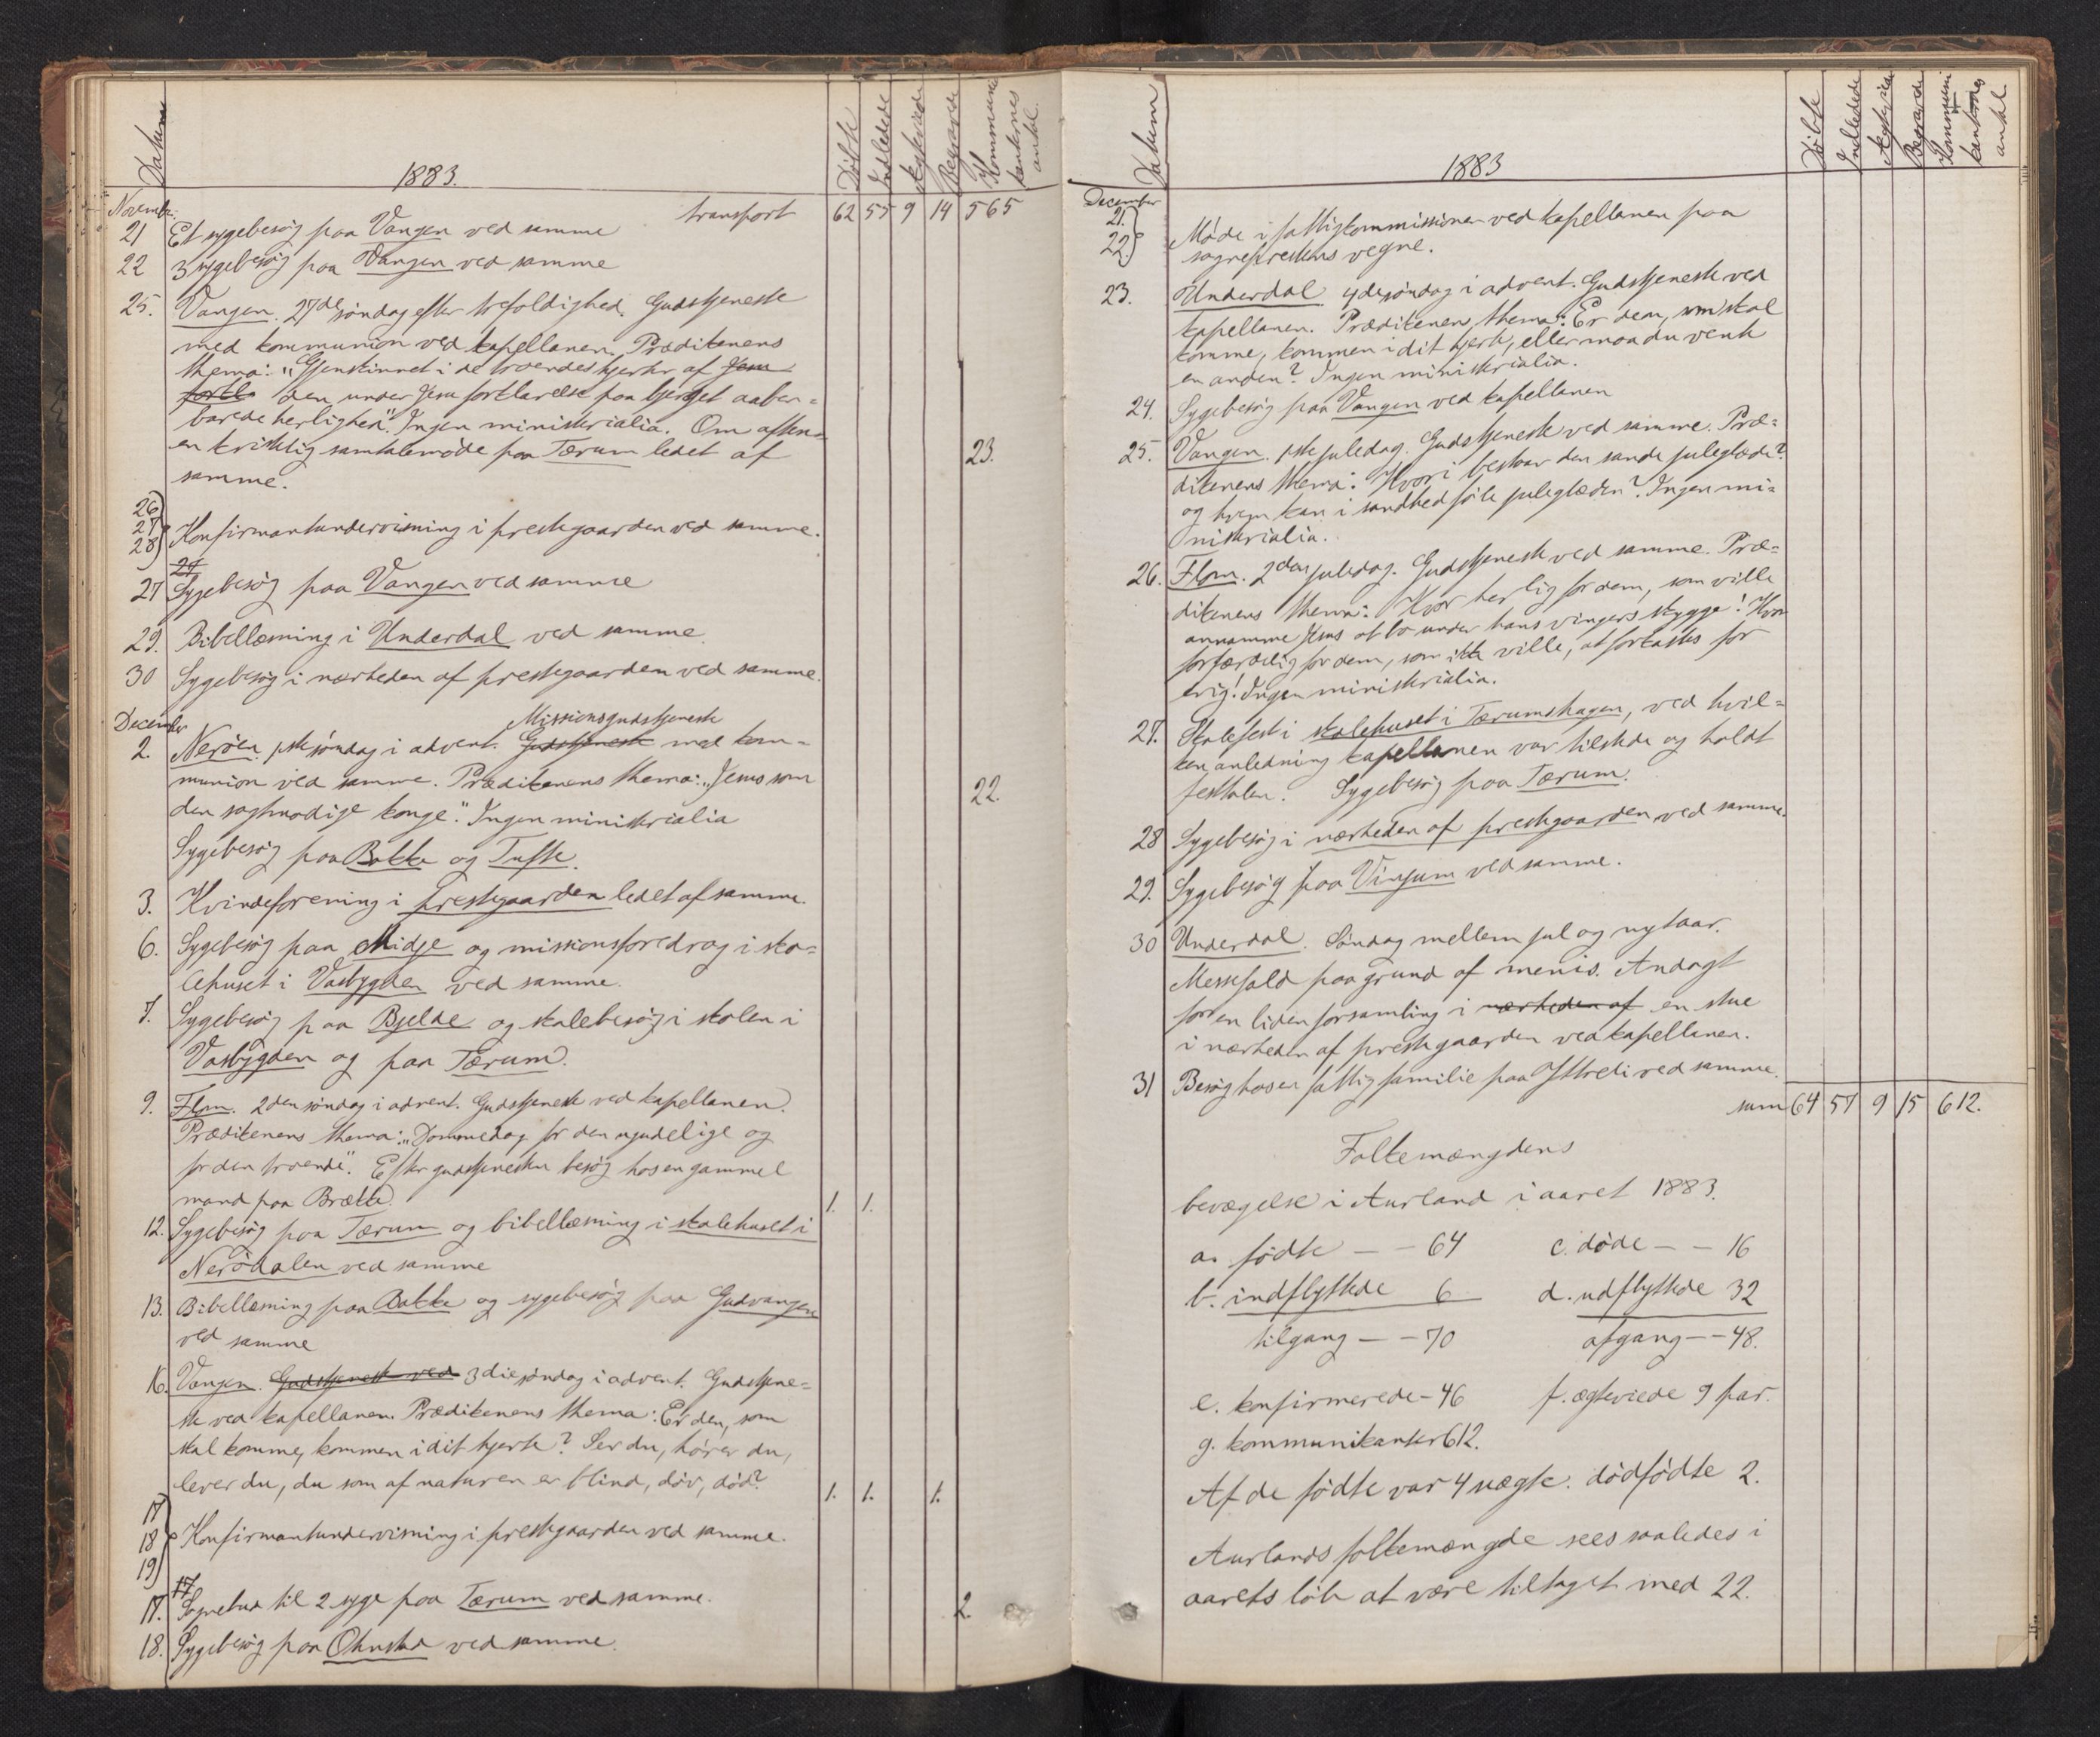 Datum
1883.
Döbte
Indledede
Ægteviede
Begravede
Kommuni
kanternes
antal.
November. transport 62 55 9 14 565
21 Et sygebesög paa Vangen ved samme
22 3 sygebesög paa Vangen ved samme
25. Vangen. 27de söndag efter trefoldighed. Gudstjeneste
med kommunion ved kapellanen. Prædikenens
thema: "Gjenskinnet i de troendes hjerter af Jesu
forkl den under Jesu forklarelse paa bjerget aaben=
barede herlighed". Ingen ministerialia. Om aften=
en kristelig samtalemøde paa Tærum ledet af 23.
samme.
26
27
28 Konfirmantundervisning i prestegaarden ved samme.
27
27 Sygebesög paa Vangen ved samme
29. Bibellæsning i Underdal ved samme.
30 Sygebesög i nærheden af prestegaarden ved samme.
December
Missionsgudstjeneste
2. Neröen. 1ste söndag i advent. Gudstjeneste med kom=
munion ved samme. Prædikenens thema: "Jesus som 22.
den sagtmodige konge". Ingen ministerialia
Sygebesög paa Bakke og Tufte.
3. Kvindeforening i prestegaarden ledet af samme.
6. Sygebesög paa Midje og missionsforedrag i sko=
lehuset i Vasbygden ved samme.
7. Sygebesög paa Bjelde og skolebesög i skolen i
Vasbygden og paa Tærum.
9. Flom. 2den söndag i advent. Gudstjeneste ved kapellanen.
Prædikenens thema: "Dommedag for den ugudelige og
for den troende". Efter gudstjenesten besög hos en gammel
mand paa Brække. 1. 1.
12. Sygebesög paa Tærum og bibellæsning i skolehuset i
Nerödalen ved samme
13. Bibellæsning paa Bakke og sygebesög paa Gudvangen
ved samme
16. Vangen. Gudstjeneste ved 3die söndag i advent. Gudstjene=
ste ved kapellanen. Prædikenens thema: Er den, som
skal komme, kommen i dit hjerte? Ser du, hörer du,
lever du, du som af naturen er blind, döv, död? 1. 1. 1.
17
18 Konfirmantundervisning i prestegaarden ved samme.
19
17
17. Sognebud til 2 syge paa Tærum ved samme. 2.
18. Sygebesög paa Ohnstad ved samme.
Datum
1883
Döbte
Indledede
Ægteviede
Begravede
Kommuni
kanternes
antal
December
21.
22. Möde i fattigkommissionen ved kapellanen paa
sogneprestens vegne.
23. Underdal 4de söndag i advent. Gudstjeneste ved
kapellanen. Prædikenens thema: Er den, som skal
komme, kommen i dit hjerte, eller maa du vente
en anden? Ingen ministerialia.
24. Sygebesög paa Vangen ved kapellanen
25. Vangen. 1ste juledag. Gudstjeneste ved samme. Præ=
dikenens thema: Hvori bestaar den sande juleglæde?
og hvem kan i sandhed föle juleglæden? Ingen mi=
nisterialia.
26. Flom. 2den juledag. Gudstjeneste ved samme. Præ=
dikenens thema: Hvor herlig for dem, som ville
annamme Jesus at bo under hans vingers skygge! Hvor
forfærdelig for dem, som ikke ville, at forkastes for
evig! Ingen ministerialia.
27. Skolefest i skolehuset i Tærumshagen, ved hvil=
ken anledning kapellanen var tilstede og holdt
festtalen. Sygebesög paa Tærum.
28 Sygebesög i nærheden af prestegaarden ved samme.
29. Sygebesög paa Vinjum ved samme.
30 Underdal. Söndag mellem jul og nytaar.
Messefald paa grund af menis. Andagt
for en liden forsamling i nærheden af en stue
i nærheden af prestegaarden ved kapellanen.
31 Besög hos en fattig familie paa Ytteli ved samme.
sum 64 57 9 15 612.
Folkemængdens
bevægelse i Aurland i aaret 1883.
a. födte – – 64 c. döde – – 16
b. indflyttede 6 d. udflyttede 32
tilgang – – 70 afgang – – 48.
e. konfirmerede – 46 f. ægteviede 9 par.
g. kommunikanter 612.
Af de födte var 4 uægte. dödfödte 2.
Aurlands folkemængde sees saaledes i
aarets löb at være tiltaget med 22.